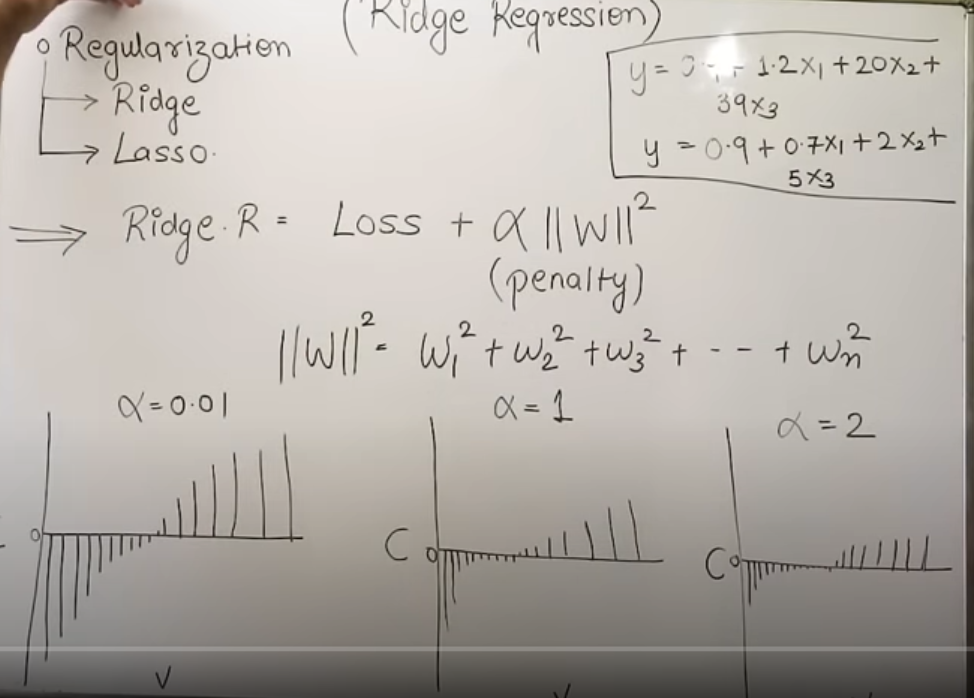 (Ridge Regression)
Regularization
→ Ridge
→ Lasso.
y = 1.2x₁ + 20x₂ +
39x₃
y = 0.9 + 0.7x₁ + 2x₂ +
5x₃
⇒ Ridge.R = Loss + α ||W||²
(penalty)
||W||² = W₁² + W₂² + W₃² + - - + Wn²
α = 0.01
α = 1
α = 2
0
C 0
C 0
V